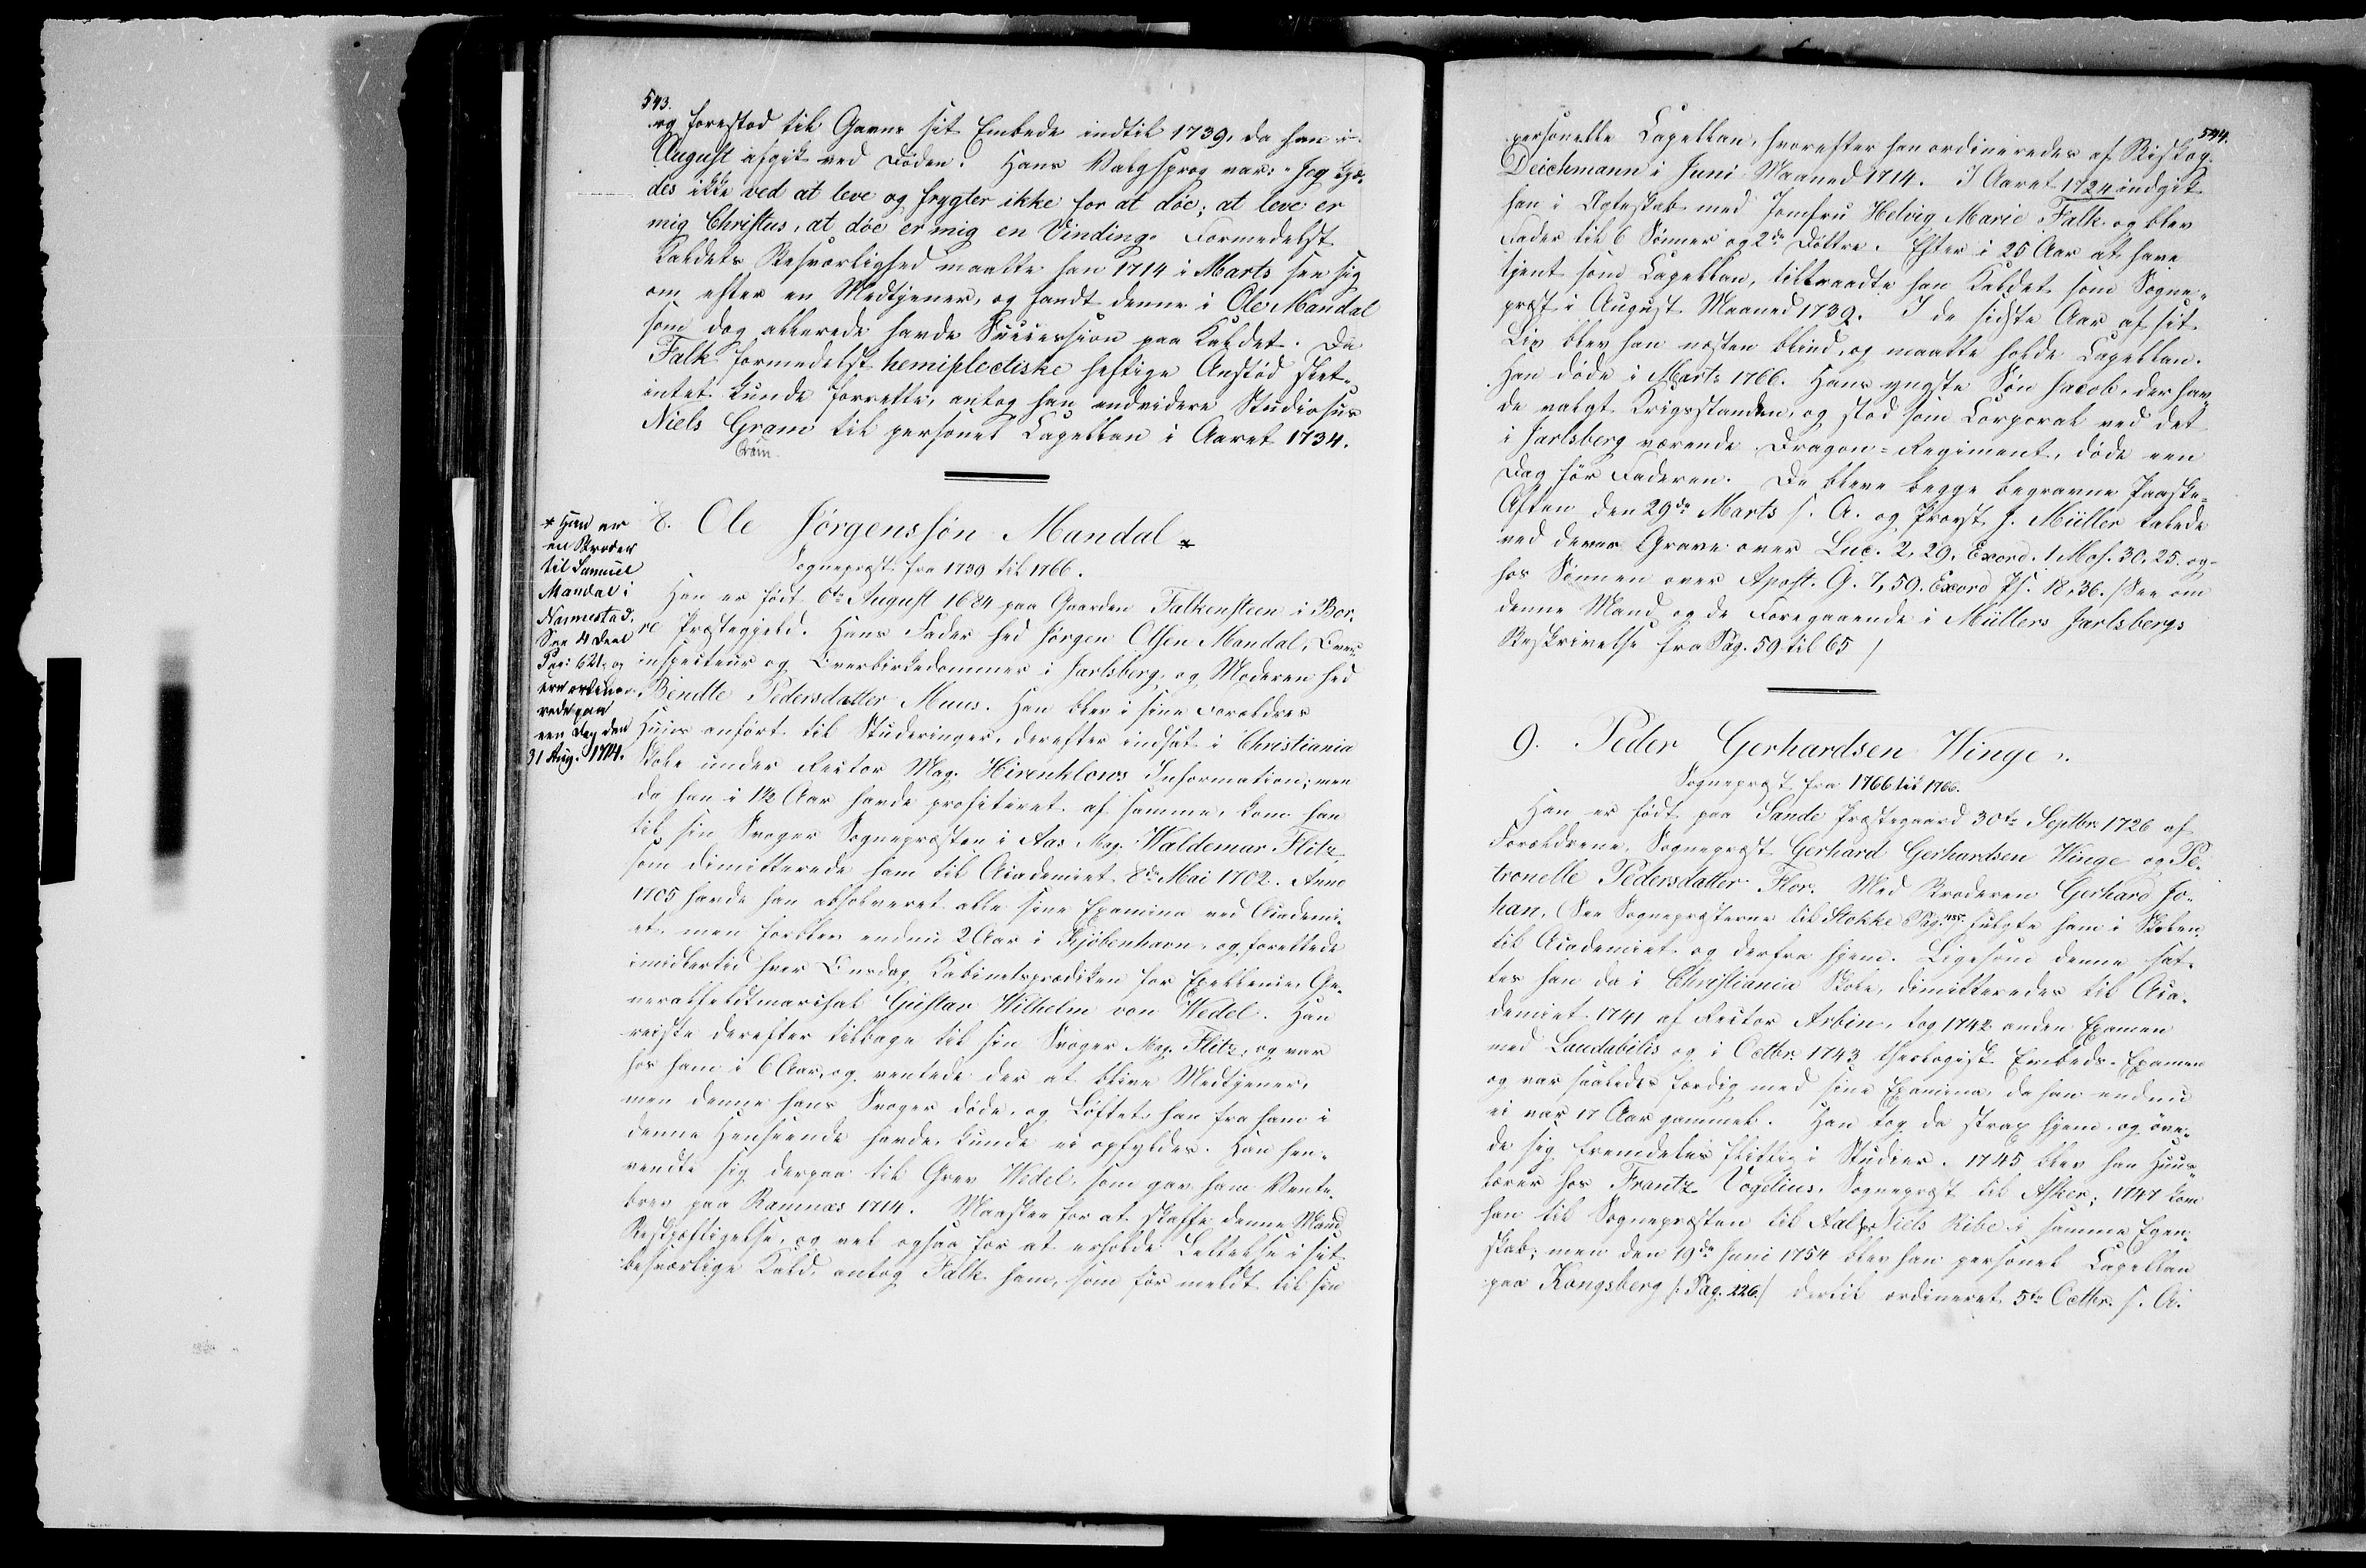 543.
og forestod til Gavns sit Embede indtil 1739, da han i
August afgik ved Døden. Hans Valgsprog var: "Jeg kje-
des ikke ved at leve og frygter ikke for at döe; at leve er
mig Christus, at döe er mig en Vinding. Formedelst
Kaldets Besværlighed maatte han 1714 i Marts see sig
om efter en Medtjener, og fandt denne i Ole Mandal
som dog allerede havde Succession paa Kaldet. Da
Falk formedelst hemiplectiske heftige Anstöd slet-
intet kunde forrette, antog han endvidere Studiosus
Niels Gram til personel Capellan i Aaret 1734.
Cram
8. Ole Jörgenssön Mandal *
Sognepræst fra 1739 til 1766.
* Han er
en Broder
til Samuel
Mandal i
Nannestad.
See 4 Deel
Pag: 621. og
ere ordine-
rede paa
een Dag den
31 Aug. 1714.
Han er født 6te August 1684 paa Gaarden Falkensteen i Bor-
re Præstegjeld. Hans Fader hed Jörgen Olsen Mandal, Over-
inspecteur og Overbirkedommer i Jarlsberg, og Moderen hed
Bendte Pedersdatter Muus. Han blev i sine Forældres
Huus anfört til Studeringer, derefter indsat i Christiania
Skole under Rector Mag. Hirenklows Information; men
da han i 1½ Aar havde profiteret af samme, kom han
til sin Svoger Sognepræsten i Aas Mag. Waldemar Flitz,
som dimitterede ham til Academiet 8de Mai 1702. Anno
1705 havde han absolveret alle sine Examina ved Academi-
et, men forblev endnu 2 Aar i Kjöbenhavn, og forettede
imidlertid hver Onsdag Kabinetsprædiken for Excellence, Ge-
neralfeldtmarschal Gustav Wilhelm von Wedel. Han
reiste derefter tilbage til sin Svoger Mag. Flitz, og var
hos ham i 6 Aar, og ventede der at blive Medtjener,
men denne hans Svoger døde, og Löftet han fra ham i
denne Henseende havde, kunde ei opfyldes. Han hen-
vendte sig derpaa til Grev Wedel, som gav ham Vente-
brev paa Ramnæs 1714. Maaskee for at skaffe denne Mand
Beskjæftigelse, og vel ogsaa for at erholde Lettelse i sit
besværlige Kald, antog Falk ham, som før meldt til sin
544.
personelle Capellan, hvorefter han ordineredes af Biskop
Deichmann i Juni Maaned 1714. I Aaret 1724 indgik
han i Ægteskab med Jomfru Helvig Marie Falk og blev
Fader til 6 Sönner og 2de Döttre. Efter i 25 Aar at have
tjent som Capellan, tiltraadte han Kaldet som Sogne-
præst i August Maaned 1739. I de sidste Aar af sit
Liv blev han næsten blind, og maatte holde Capellan.
Han döde i Marts 1766. Hans yngste Sön Jacob, der hav-
de valgt Krigsstanden, og stod som Corporal ved det
i Jarlsberg værende Dragon-Regiment, döde een
Dag för Faderen. De bleve begge begravne Paaske-
Aften den 29de Marts s. A. og Provst J. Müller talede
ved deres Grave over Luc. 2, 29. Exord. 1. Mos. 30, 25. og
hos Sönnen over Apost. G. 7, 59. Exord Ps. 18, 36. /See om
denne Mand og de Foregaaende i Müllers Jarlsbergs
Beskrivelse fra Pag. 59 til 65 /
9. Peder Gerhardsen Winge.
Sognepræst fra 1766 til 1766.
Han er født paa Sande Præstegaard 30te Septbr. 1726 af
Forældrene, Sognepræst Gerhard Gerhardsen Winge og Pe-
tronelle Pedersdatter Flor. Med Broderen Gerhard Jo-
han, (See Sognepræsterne til Stokke Pag. fulgte ham i Skolen
til Academiet og derfra hjem. Ligesom denne sat-
tes han da i Christiania Skole, dimitteredes til Aca-
demiet 1741 af Rector Arbin, tog 1742 anden Examen
med Laudabilis og i Octbr. 1743 theologisk Embeds-Examen
og var saaledes færdig med sine Examina, da han endnu
ei var 17 Aar gammel. Han tog da strax hjem og öve-
de sig fremdeles flittig i Studier. 1745 blev han Huus-
lærer hos Frantz Vogelius, Sognepræst til Asker; 1747 kom
han til Sognepræsten til Aal, Niels Ribe i samme Egen-
skab; men den 19de Juni 1754 blev han personel Capellan
paa Kongsberg /: Pag. 226./ dertil ordineret 5te Octbr. s. A.